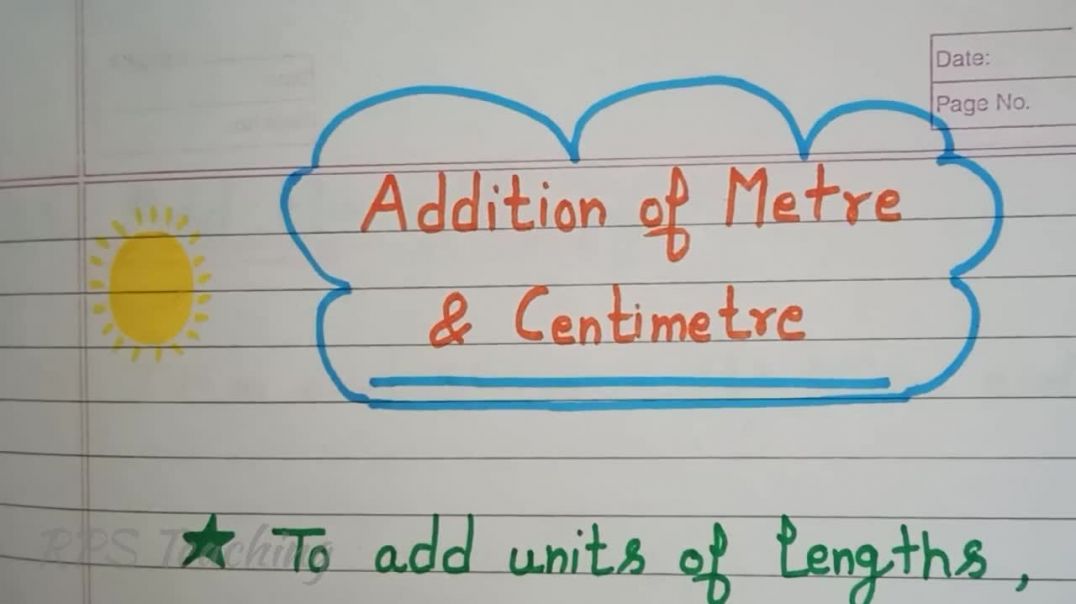 Date:
Page No.
Addition of Metre
& Centimetre
RPS Teaching
★ To add units of lengths,